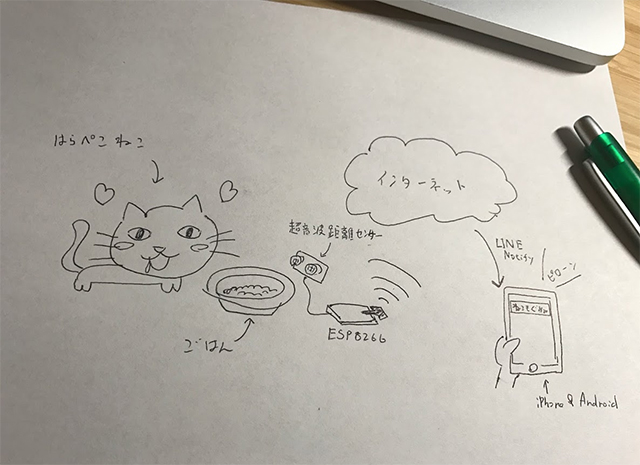 はらぺこ ねこ
インターネット
超音波距離センサー
LINE
Notify
ピローン
ごはん
ESP8266
iPhone & Android